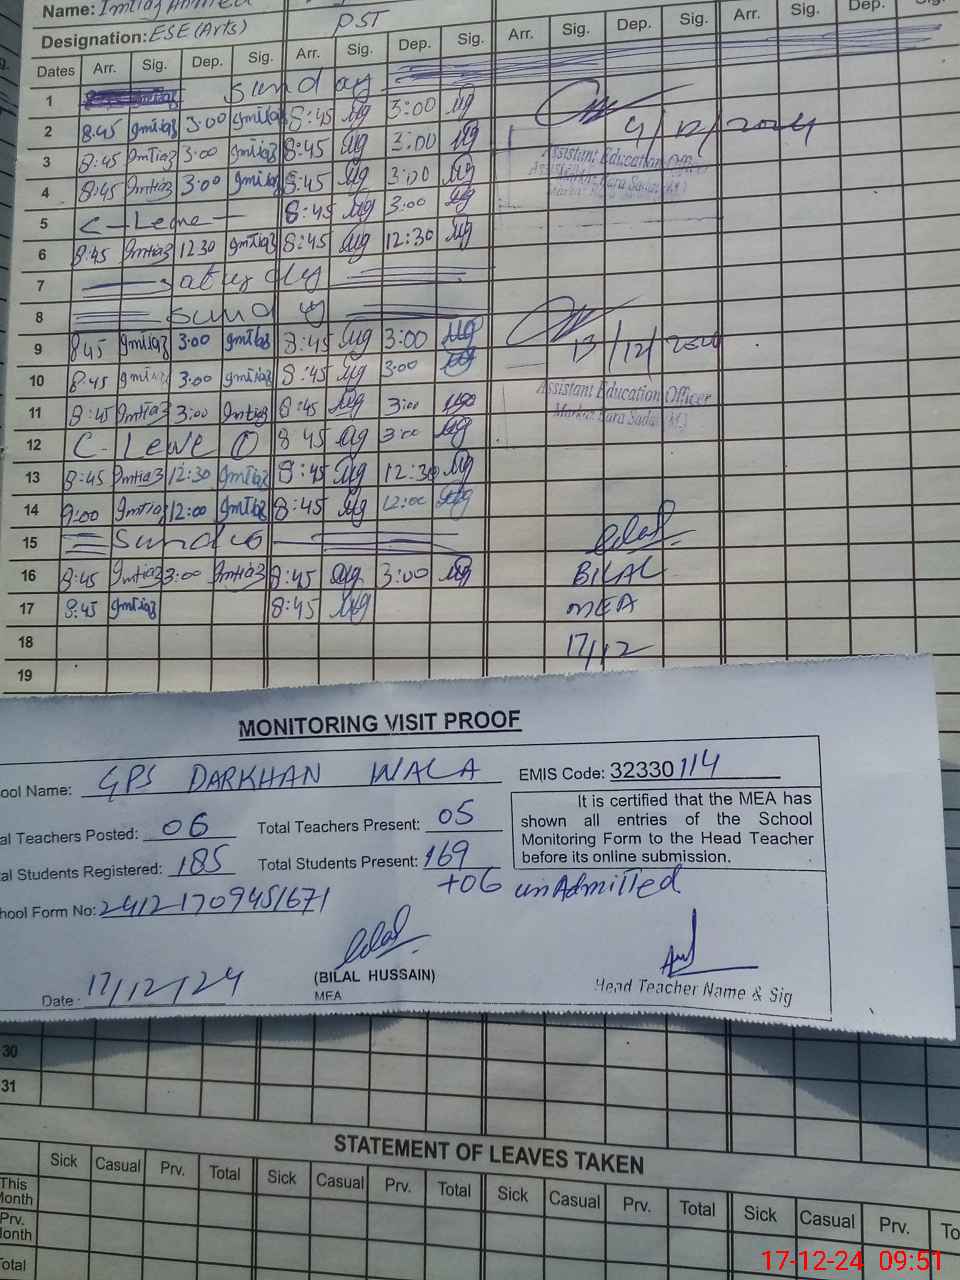 Name: Imtiaz Ahmed
Designation: ESE (Arts) PST
Dates Arr. Sig. Dep. Sig. Arr. Sig. Dep. Sig. Arr. Sig. Dep. Sig. Arr. Sig. Dep. Sig.
1 Sunday
2 8:45 Imtiaz 3:00 Imtiaz 8:45 3:00
4/12/2024
3 8:45 Imtiaz 3:00 Imtiaz 8:45 3:00
Assistant Education Officer
4 8:45 Imtiaz 3:00 Imtiaz 8:45 3:00
5 C-Leave 8:45 3:00
6 8:45 Imtiaz 12:30 Imtiaz 8:45 12:30
7 Saturday
8 Sunday
9 8:45 Imtiaz 3:00 Imtiaz 8:45 3:00
13/12/2024
10 8:45 Imtiaz 3:00 Imtiaz 8:45 3:00
Assistant Education Officer
11 8:45 Imtiaz 3:00 Imtiaz 8:45 3:00
Markaz Bara Sadat (M)
12 C-Leave 8:45 3:00
13 8:45 Imtiaz 12:30 Imtiaz 8:45 12:30
14 9:00 Imtiaz 12:00 Imtiaz 8:45 12:00
15 Sunday
Bilal
16 8:45 Imtiaz 3:00 Imtiaz 8:45 3:00
BILAL
17 8:45 Imtiaz 8:45
MEA
18
17/12
19
MONITORING VISIT PROOF
ool Name: GPS DARKHAN WALA EMIS Code: 32330114
al Teachers Posted: 06 Total Teachers Present: 05
al Students Registered: 185 Total Students Present: 169
+06 unAdmitted
It is certified that the MEA has
shown all entries of the School
Monitoring Form to the Head Teacher
before its online submission.
hool Form No: 24121709451671
Bilal
(BILAL HUSSAIN)
MEA
Date: 17/12/24
Head Teacher Name & Sig
30
31
STATEMENT OF LEAVES TAKEN
Sick Casual Prv. Total Sick Casual Prv. Total Sick Casual Prv. Total Sick Casual Prv. To
This
Month
Prv.
Month
Total
17-12-24 09:51